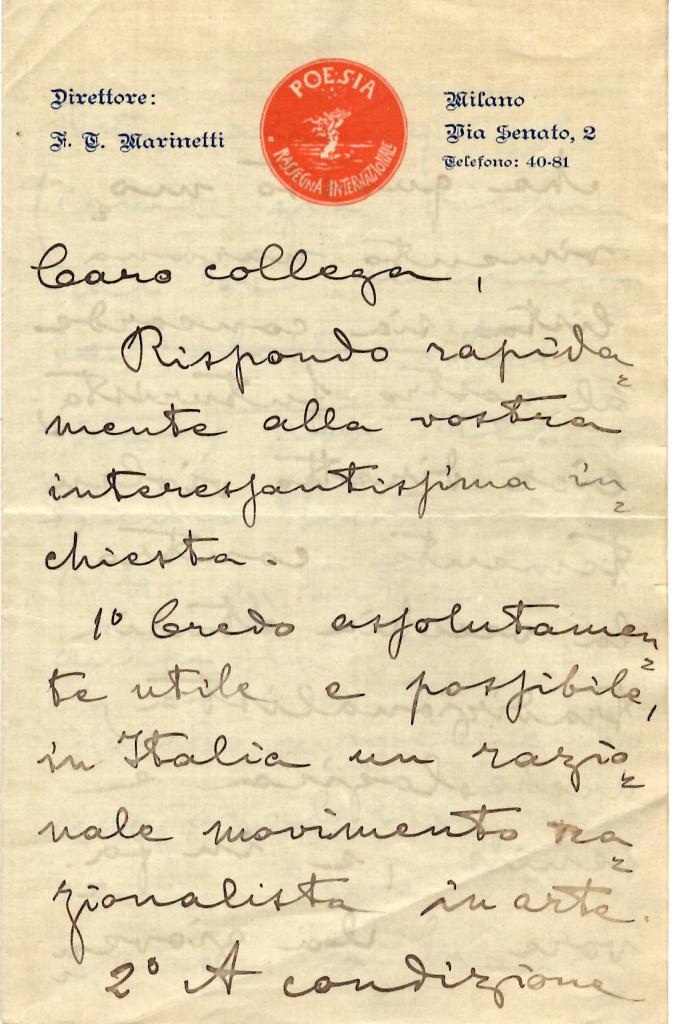 Direttore:
F. T. Marinetti
POESIA
RASSEGNA INTERNAZIONALE
Milano
Via Senato, 2
Telefono: 40-81
Caro collega,
Rispondo rapida=
mente alla vostra
interessantissima in=
chiesta.
1° Credo assolutamen=
te utile e possibile,
in Italia un razio=
nale movimento na=
zionalista in arte.
2° A condizione